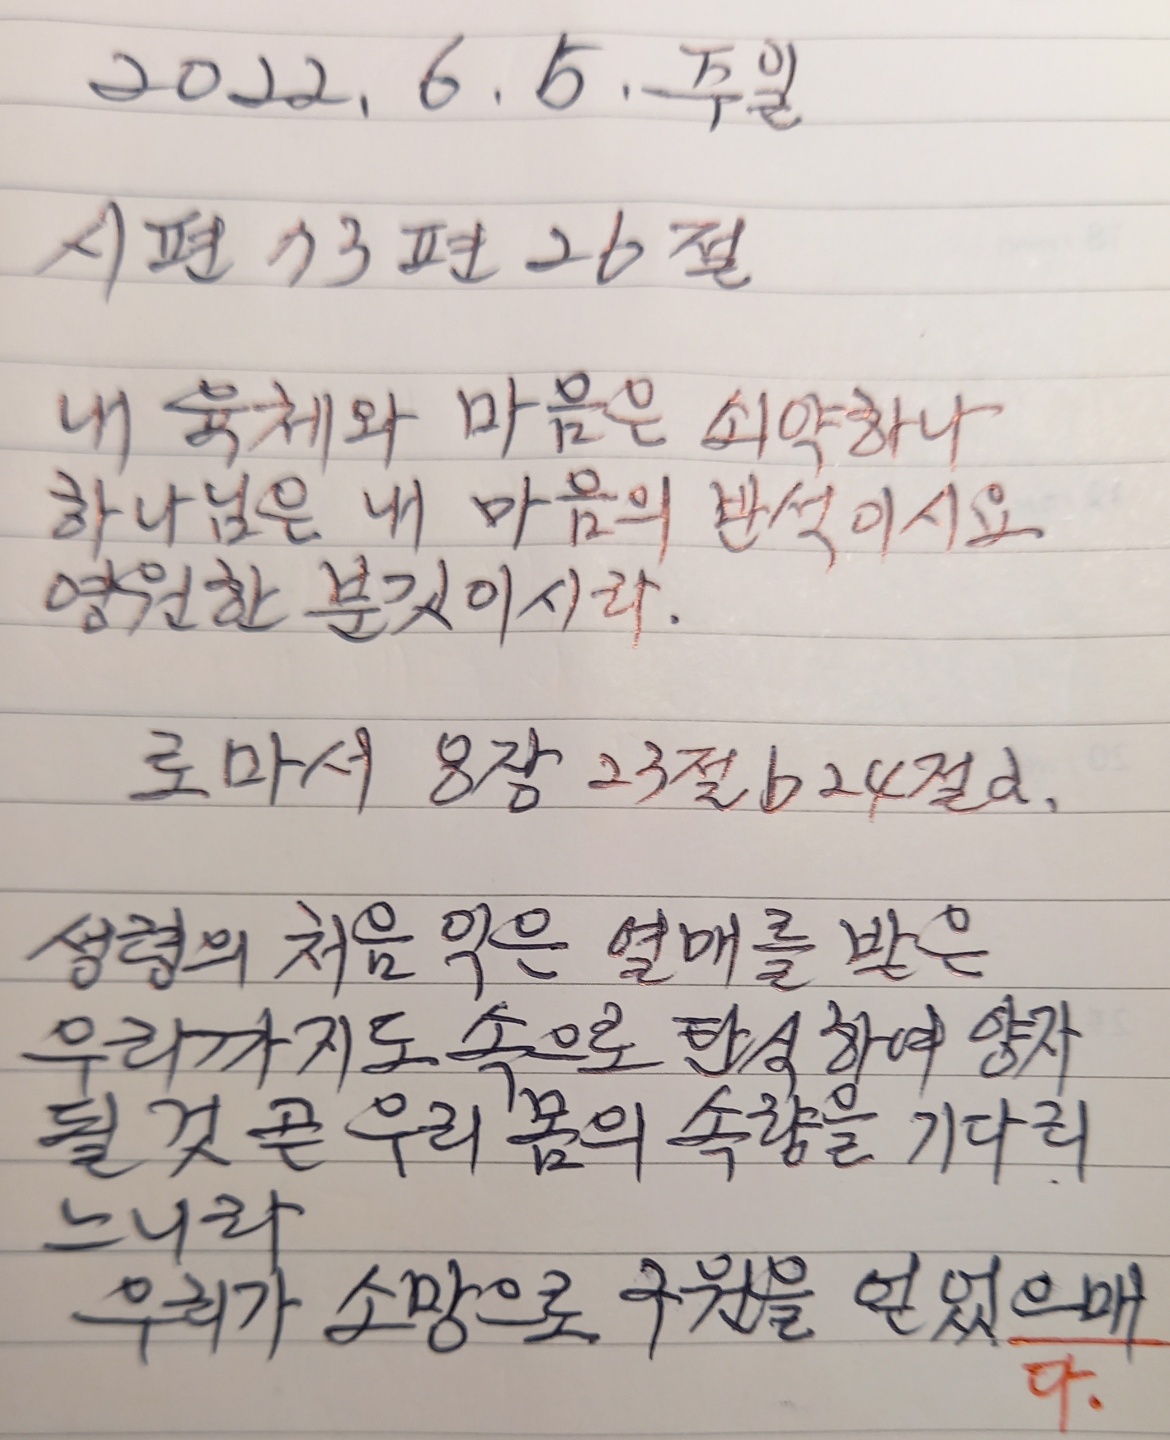 2022. 6. 5. 주일
시편 73편 26절
내 육체와 마음은 쇠약하나
하나님은 내 마음의 반석이시요
영원한 분깃이시라.
로마서 8장 23절b 24절a.
성령의 처음 익은 열매를 받은
우리까지도 속으로 탄식하여 양자
될 것 곧 우리 몸의 속량을 기다리
느니라
우리가 소망으로 구원을 얻었으매
다.